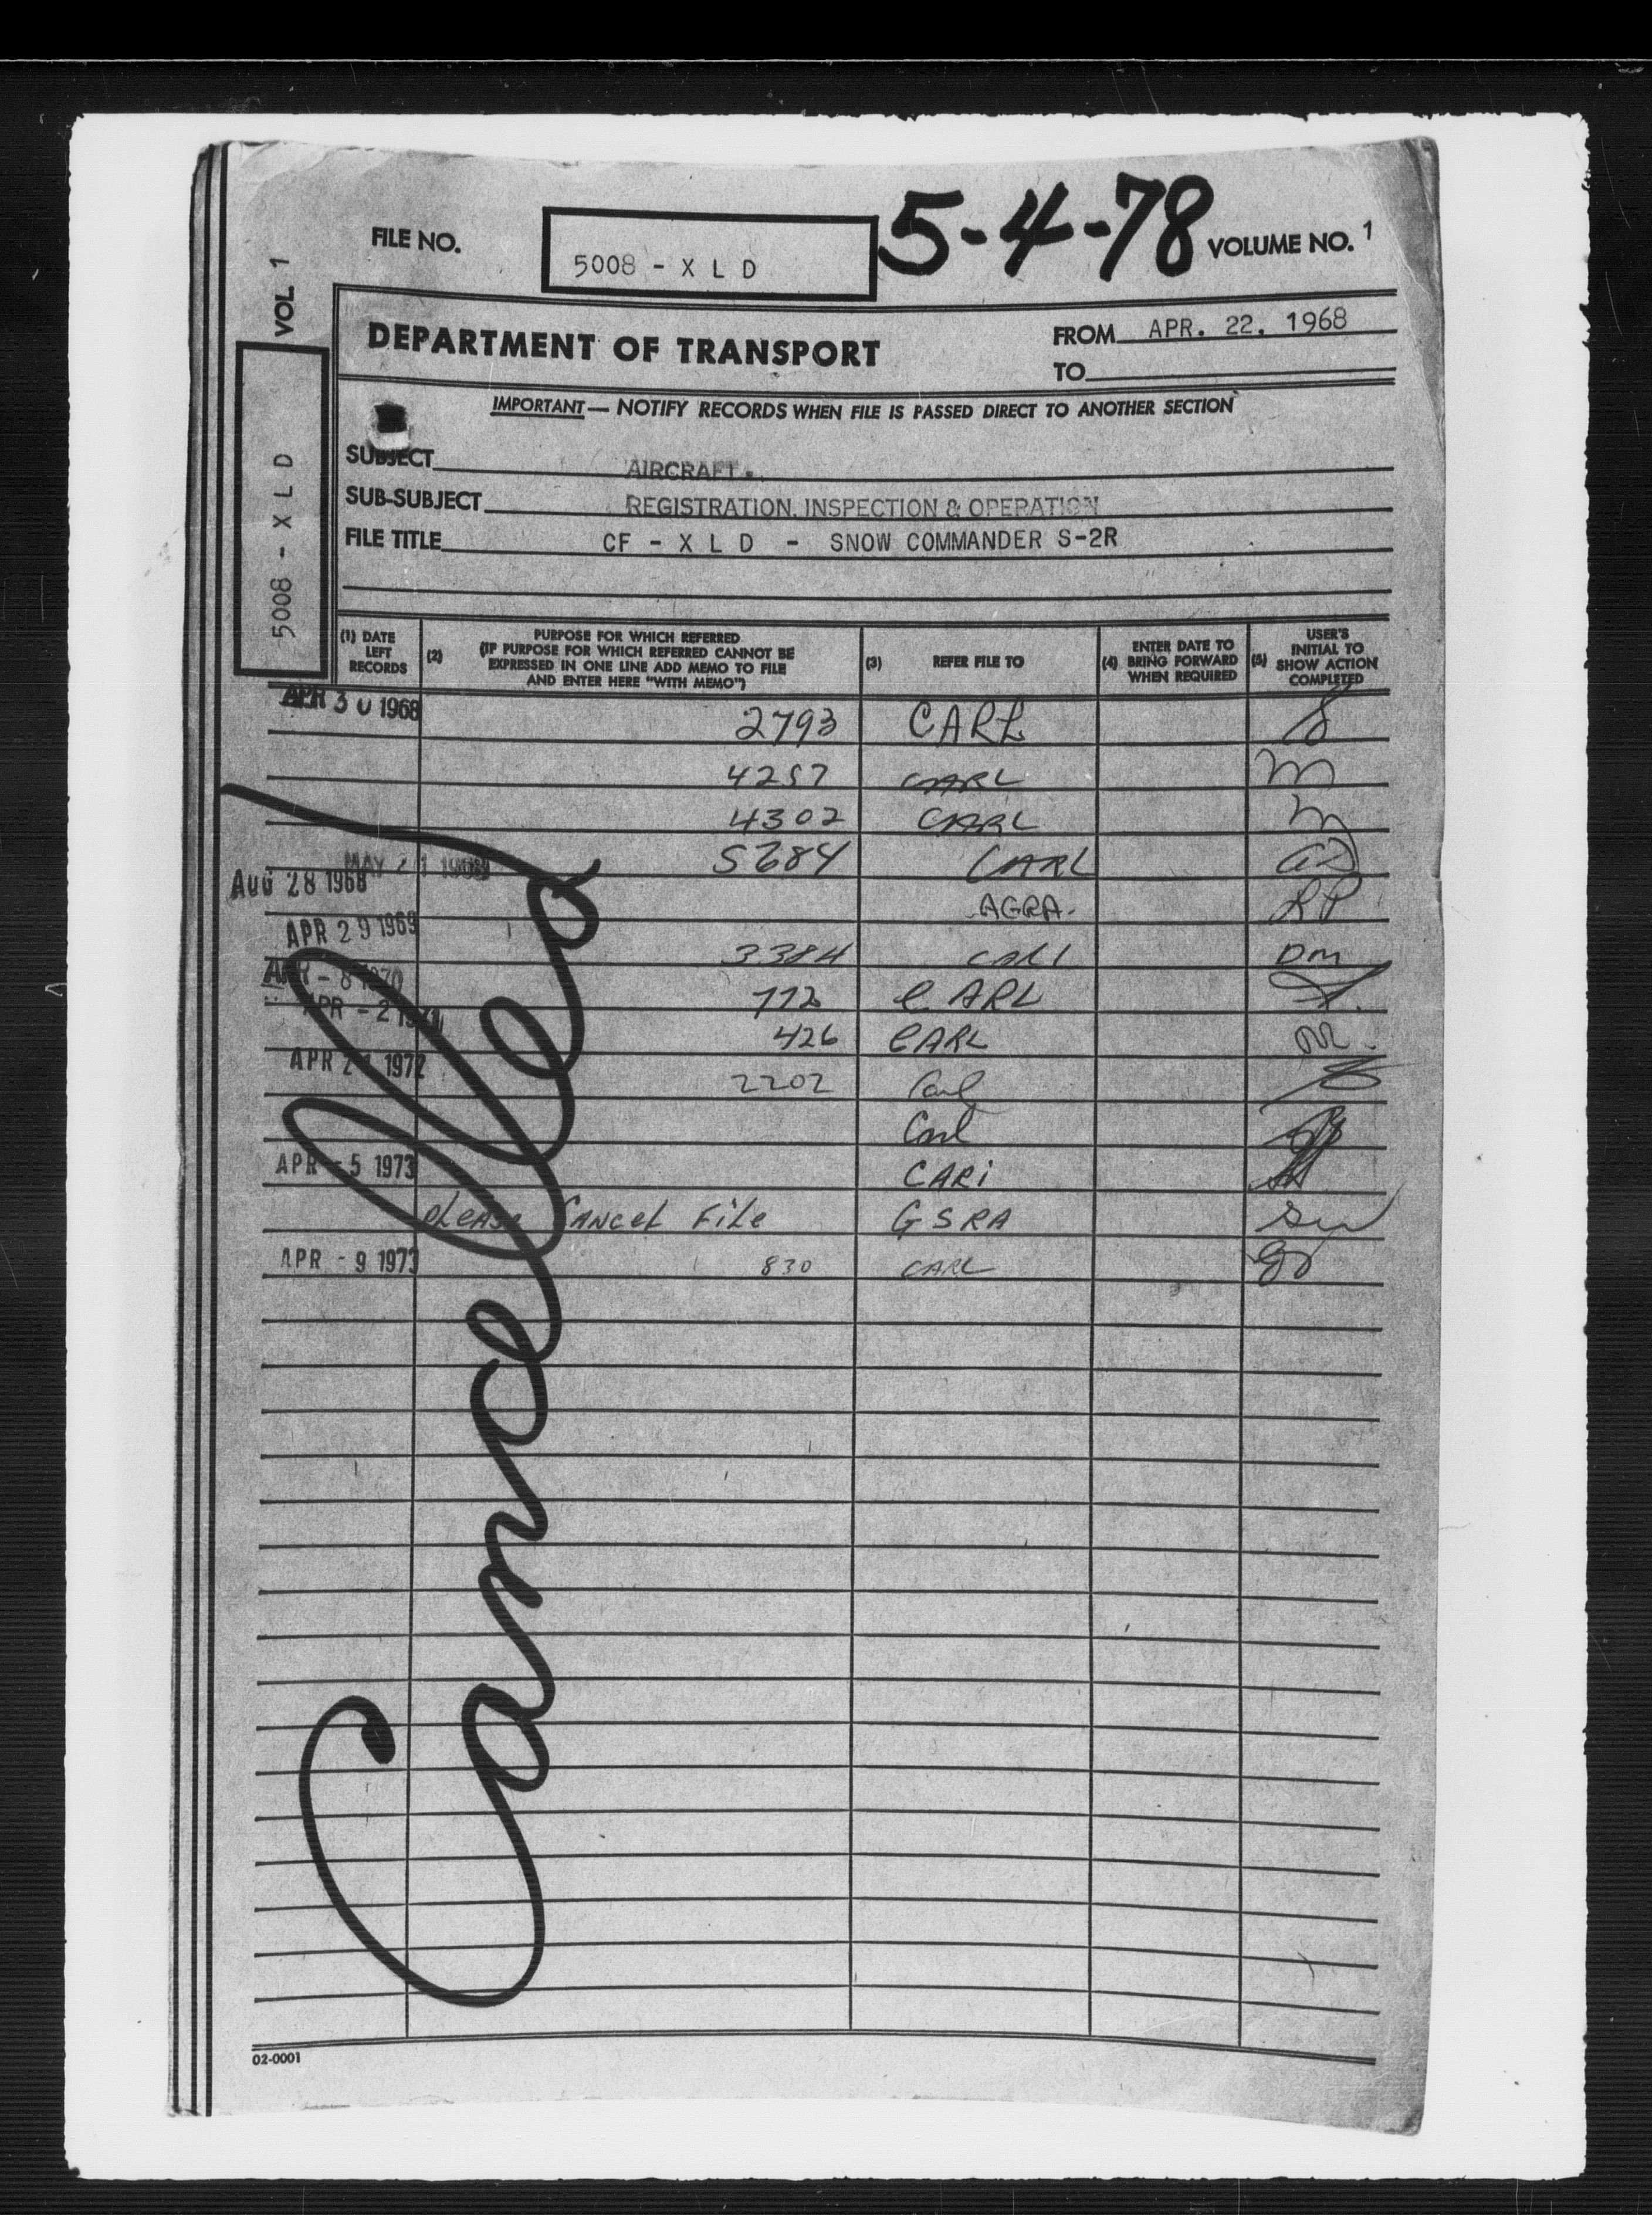 5-4-78
FILE NO. 5008 - X L D VOLUME NO. 1
VOL 1
5008 - X L D
DEPARTMENT OF TRANSPORT
FROM APR. 22. 1968
TO
IMPORTANT — NOTIFY RECORDS WHEN FILE IS PASSED DIRECT TO ANOTHER SECTION
SUBJECT AIRCRAFT.
SUB-SUBJECT REGISTRATION, INSPECTION & OPERATION
FILE TITLE CF - X L D - SNOW COMMANDER S-2R
(1) DATE LEFT RECORDS
(2) PURPOSE FOR WHICH REFERRED
(IF PURPOSE FOR WHICH REFERRED CANNOT BE
EXPRESSED IN ONE LINE ADD MEMO TO FILE
AND ENTER HERE "WITH MEMO")
(3) REFER FILE TO
(4) ENTER DATE TO BRING FORWARD WHEN REQUIRED
(5) USER'S INITIAL TO SHOW ACTION COMPLETED
APR 30 1968 2793 CARL
4257 CARL m
4302 CARL m
5684 CARL
AUG 28 1968 AGRA. LP
APR 29 1969 3384 CARL DM
APR - 8 1970 772 CARL
APR - 2 1971 426 CARL
APR 21 1972 2202 Carl
Carl
APR - 5 1973 CARL
Please Cancel File GSRA
APR - 9 1973 830 CARL
Cancelled
02-0001